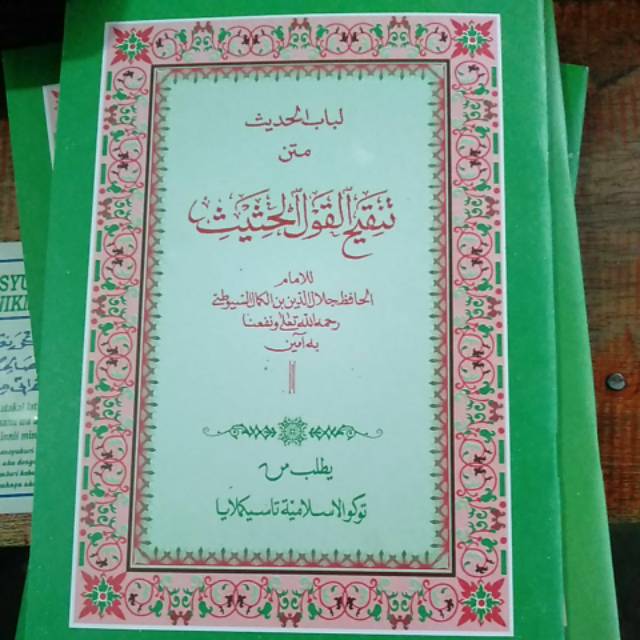 لباب الحديث
متن
تنقيح القول الحثيث
للامام
الحافظ جلال الدين بن الكمال السيوطي
رحمه الله تعالى ونفعنا
به آمين
يطلب من
توكو الاسلامية تاسيكملايا
SYU